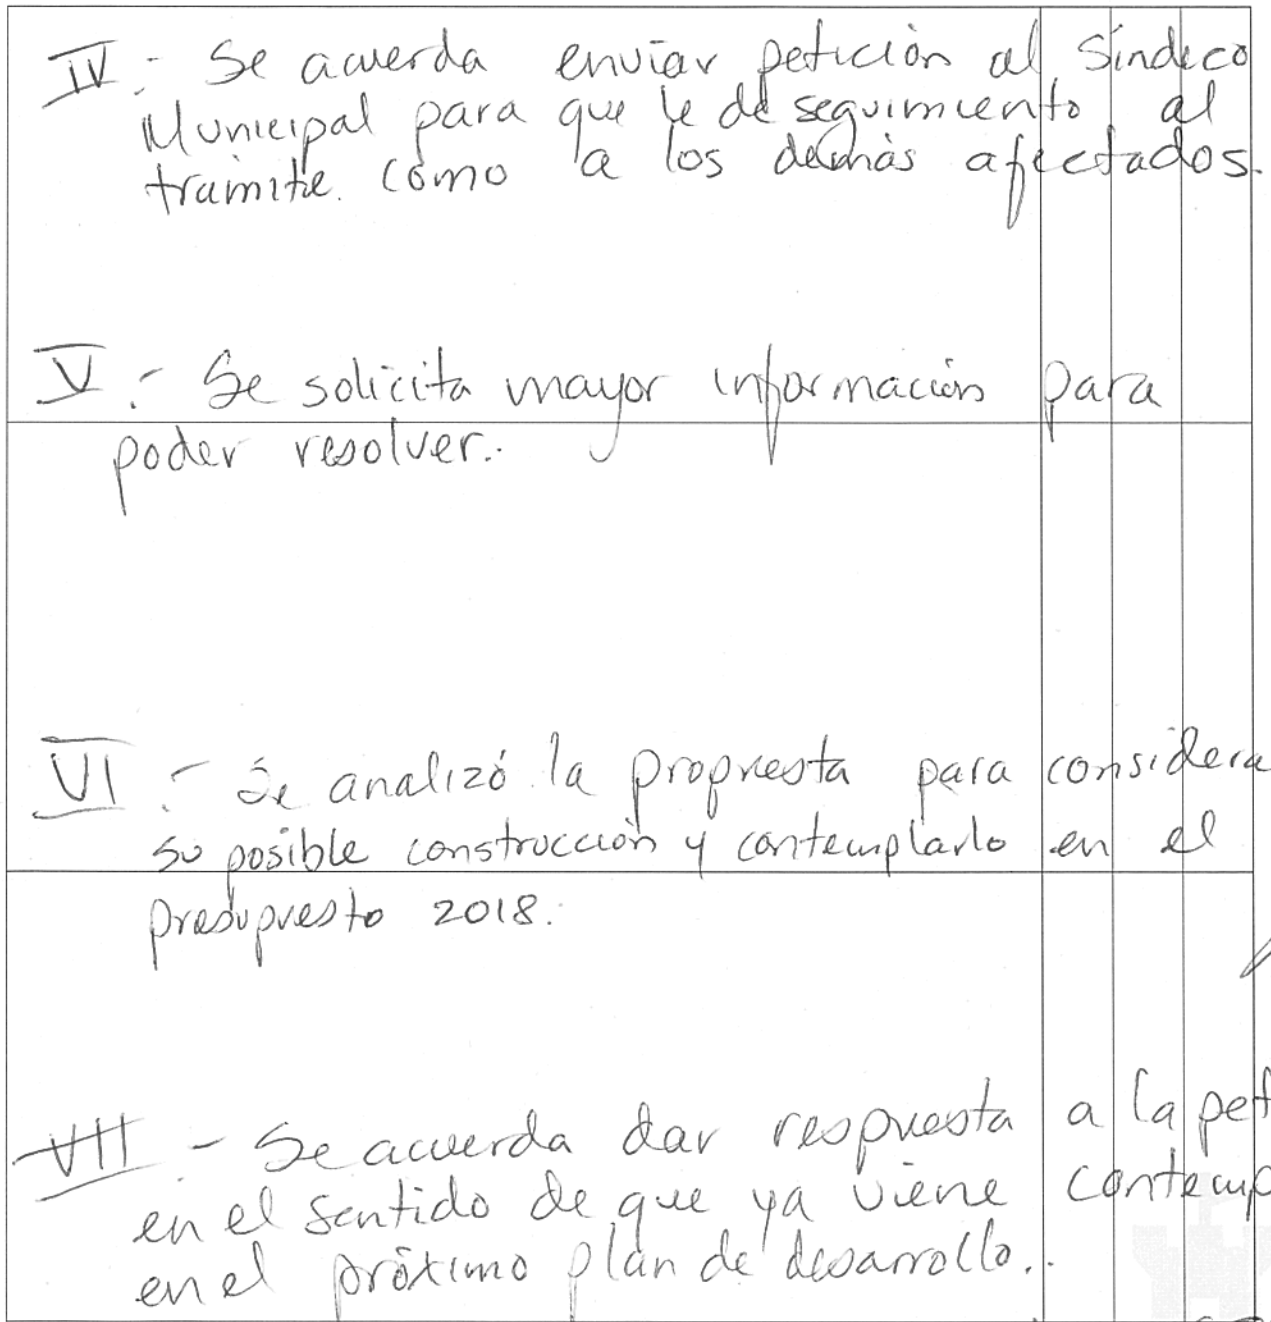 IV.- Se acuerda enviar petición al Síndico
Municipal para que le dé seguimiento al
trámite. como a los demás afectados.
V.- Se solicita mayor información para
poder resolver.
VI.- Se analizó la propuesta para considera
su posible construcción y contemplarlo en el
presupuesto 2018.
VII - Se acuerda dar respuesta a la pet
en el sentido de que ya viene contemp
en el próximo plan de desarrollo..